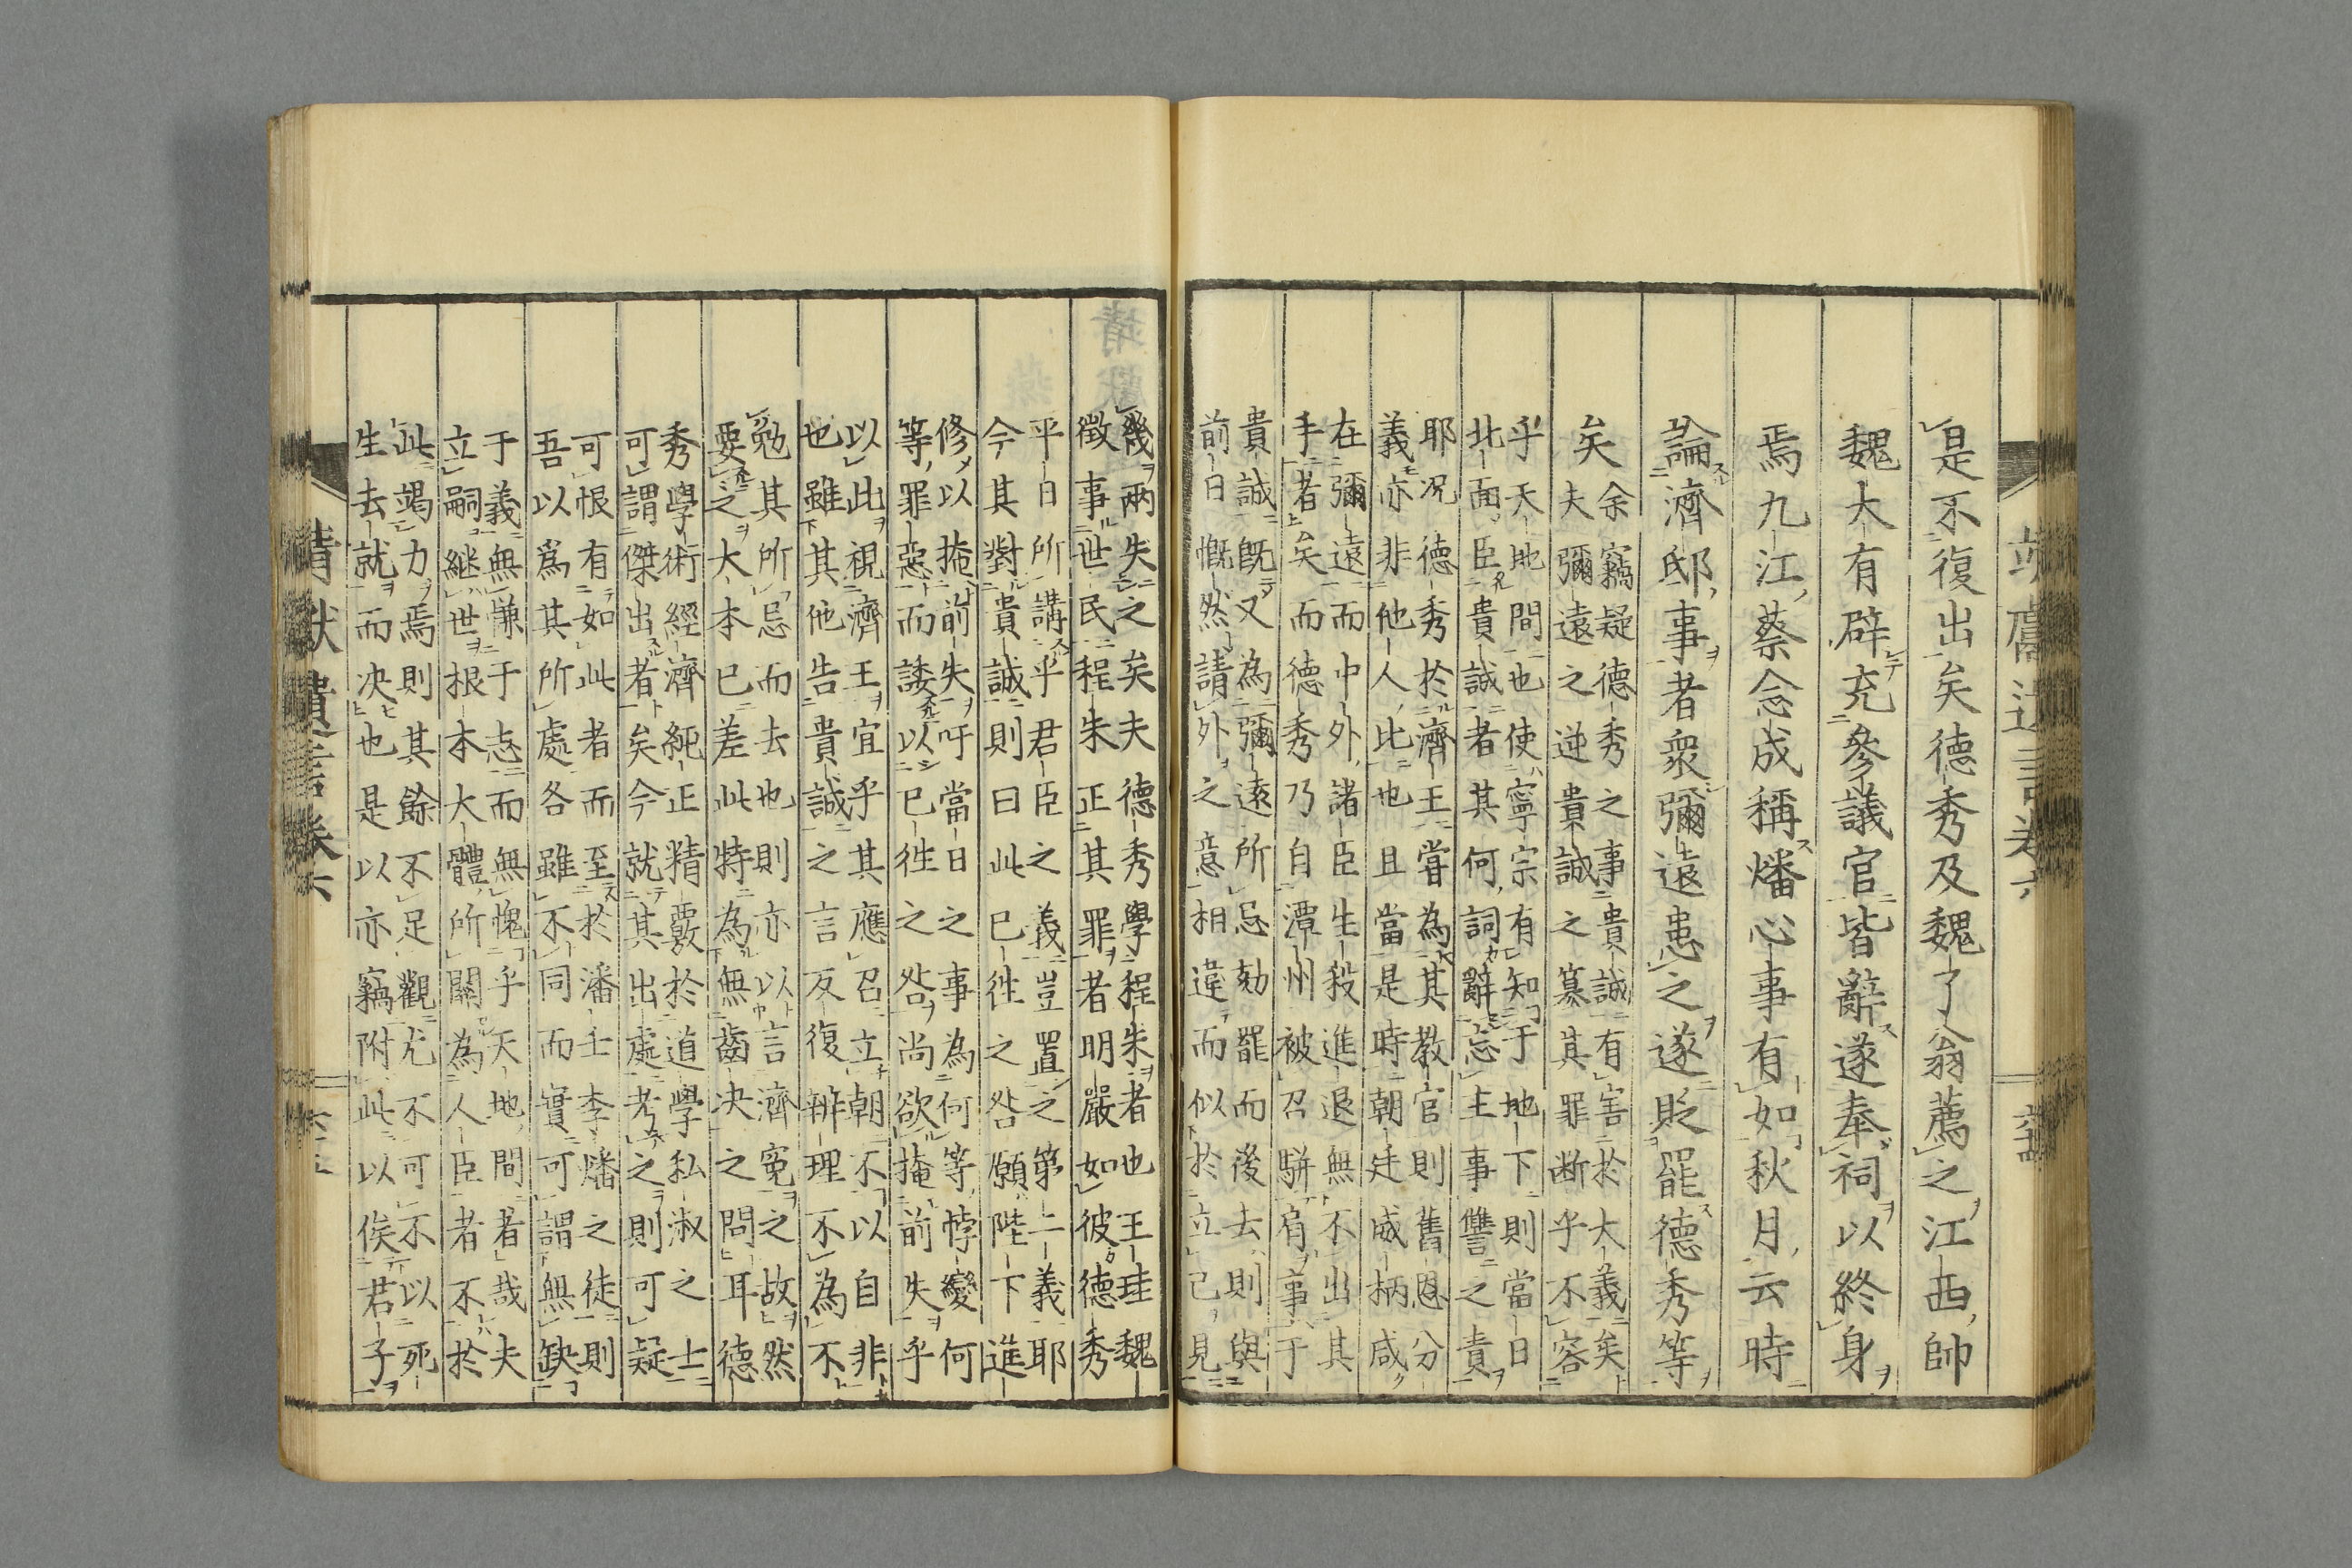 是不復出矣德秀及魏了翁薦之江西帥
魏大有辟充參議官皆辭遂奉祠以終身
焉九江蔡念成稱燔心事有如秋月云時
論濟邸事者衆彌遠患之遂貶罷德秀等
矣
余竊疑德秀之事貴誠有害於大義矣
夫彌遠之逆貴誠之簒其罪断乎不容
乎天地間也使寧宗有知于地下則當日
北面臣貴誠者其何詞辭忘主事讐之責
耶况德秀於濟王嘗為其教官則舊恩分
義亦非他人比也且當是時朝廷威柄咸
在彌遠而中外諸臣生殺進退無不出其
手者矣而德秀乃自潭州被召駢有事于
貴誠既又為彌遠所忌劾罷而後去則與
前日慨然請外之意相違而似於立己見
幾兩失之矣夫德秀學程朱者也王珪魏
徵事世民程朱正其罪者明嚴如彼德秀
平日所講乎君臣之義豈置之第二義耶
今其對貴誠則曰此已徃之咎願陛下進
修以掩前失吁當日之事為何等悖變何
等罪惡而諉以已徃之咎尚欲掩前失乎
以此視濟王宜乎其應召立朝不以自非
也雖其他告貴誠之言反復辨理不為不
勉其所忌而去也則亦以言濟冤之故然
要之大本已差此特為無齒决之問耳德
秀學術經濟純正精覈於道學私淑之士
可謂傑出者矣今就其出處考之則可疑
可恨有如此者而至於潘壬李燔之徒則
吾以爲其所處各雖不同而實可謂無缺
于義無慊于志而無愧乎天地間者哉夫
立嗣継世根本大體所關為人臣者不於
此竭力焉則其餘不足觀尤不可不以死
生去就而决也是以亦竊附此以俟君子
靖獻遺言卷六